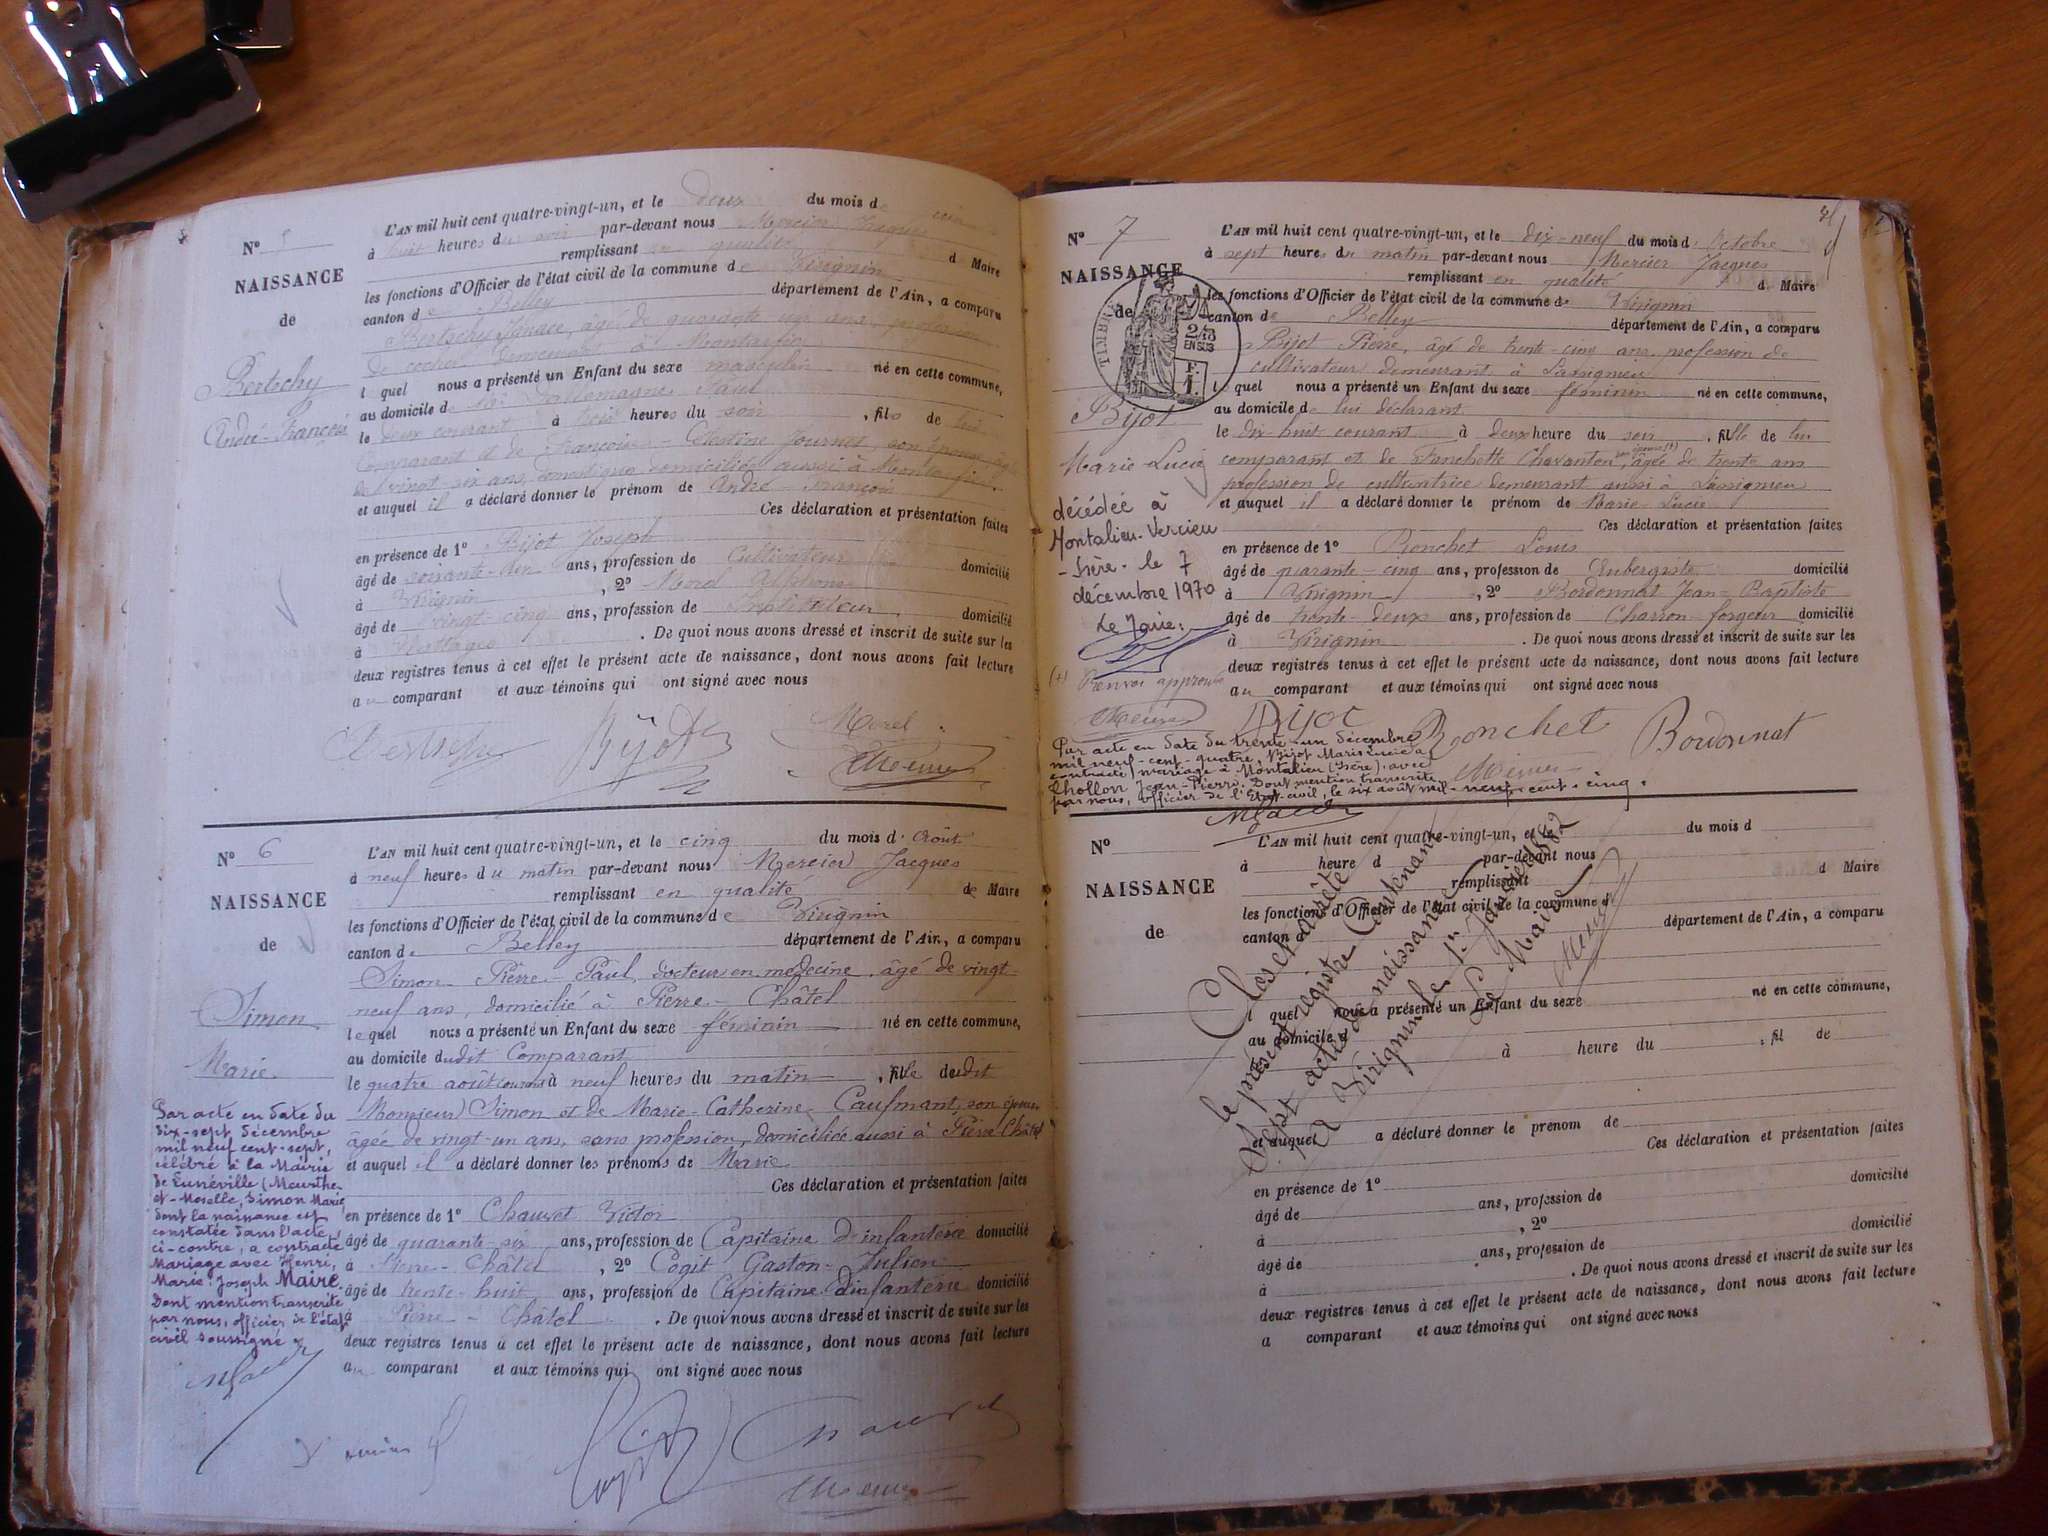 N° 5
NAISSANCE
de
Bertschy
André-François
L'AN mil huit cent quatre-vingt-un, et le deux du mois de
à huit heures du soir par-devant nous Mercier Jacques
remplissant en qualité de Maire
les fonctions d'Officier de l'état civil de la commune de Virignin
canton de Belley département de l'Ain, a comparu
Bertschy Ignace, âgé de quarante un ans, profession
de cocher, domicilié à
lequel nous a présenté un Enfant du sexe masculin né en cette commune,
au domicile de Paul
le deux courant à trois heures du soir, fils de lui
comparant et de Françoise-Célestine Journet, son épouse, âgée
de vingt six ans, domestique domiciliée aussi à
et auquel il a déclaré donner le prénom de André-François
Ces déclaration et présentation faites
en présence de 1° Bijot Joseph
âgé de soixante-un ans, profession de Cultivateur domicilié
à Virignin, 2° Morel Alphonse
âgé de vingt-cinq ans, profession de Instituteur domicilié
à. De quoi nous avons dressé et inscrit de suite sur les
deux registres tenus à cet effet le présent acte de naissance, dont nous avons fait lecture
au comparant et aux témoins qui ont signé avec nous
Bertschy Bijot Morel
Mercier
N° 6
NAISSANCE
de
Simon
Marie
L'AN mil huit cent quatre-vingt-un, et le cinq du mois d'Août
à neuf heures du matin par-devant nous Mercier Jacques
remplissant en qualité de Maire
les fonctions d'Officier de l'état civil de la commune de Virignin
canton de Belley département de l'Ain, a comparu
Simon Pierre-Paul, docteur en médecine, âgé de vingt-
neuf ans, domicilié à Pierre-Châtel
lequel nous a présenté un Enfant du sexe féminin né en cette commune,
au domicile dudit Comparant
le quatre août courant à neuf heures du matin, fille dudit
Monsieur Simon et de Marie-Catherine Caufmant, son épouse
âgée de vingt-un ans, sans profession, domiciliée aussi à Pierre Châtel
et auquel il a déclaré donner les prénoms de Marie
Ces déclaration et présentation faites
en présence de 1° Chauvet Victor
âgé de quarante-six ans, profession de Capitaine d'infanterie domicilié
à Pierre-Châtel, 2° Cogit Gaston-Julien
âgé de trente-huit ans, profession de Capitaine d'infanterie domicilié
à Pierre-Châtel. De quoi nous avons dressé et inscrit de suite sur les
deux registres tenus à cet effet le présent acte de naissance, dont nous avons fait lecture
au comparant et aux témoins qui ont signé avec nous
Par acte en date du
dix-sept décembre
mil neuf cent-sept,
célébré à la Mairie
de Lunéville (Meurthe-
et-Moselle, Simon Marie
dont la naissance est
constatée dans l'acte
ci-contre, a contracté
Mariage avec Henri,
Marie-Joseph Maire.
Dont mention transcrite
par nous, officier de l'état
civil soussigné
Mercier
N° 7
NAISSANCE
de
TIMBRE
2/10
EN SUS
F.
1.
Bijot
Marie-Lucie
L'AN mil huit cent quatre-vingt-un, et le dix-neuf du mois d'Octobre
à sept heures du matin par-devant nous Mercier Jacques
remplissant en qualité de Maire
les fonctions d'Officier de l'état civil de la commune de Virignin
canton de Belley département de l'Ain, a comparu
Bijot Pierre, âgé de trente-cinq ans, profession de
cultivateur demeurant à Lassignieu
lequel nous a présenté un Enfant du sexe féminin né en cette commune,
au domicile de lui déclarant
le dix-huit courant à deux heure du soir, fille de lui
comparant et de Fanchette Chavanton son épouse (+), âgée de trente ans
profession de cultivatrice demeurant aussi à Lassignieu
et auquel il a déclaré donner le prénom de Marie Lucie
Ces déclaration et présentation faites
en présence de 1° Ronchet Louis
âgé de quarante-cinq ans, profession de Aubergiste domicilié
à Virignin, 2° Bordonnat Jean-Baptiste
âgé de trente-deux ans, profession de Charron-forgeur domicilié
à Virignin. De quoi nous avons dressé et inscrit de suite sur les
deux registres tenus à cet effet le présent acte de naissance, dont nous avons fait lecture
au comparant et aux témoins qui ont signé avec nous
décédée à
Montalieu-Vercieu
-Isère- le 7
décembre 1970
Le Maire:
(+) Renvoi approuvé
Mercier Bijot Ronchet Bordonnat
Mercier
Par acte en date du trente-un décembre
mil neuf-cent-quatre, Bijot Marie Lucie a
contracté mariage à Montalieu (Isère) avec
Chollon Jean-Pierre. Dont mention transcrite
par nous, officier de l'Etat-civil, le six août mil-neuf-cent-cinq.
N°
NAISSANCE
de
L'AN mil huit cent quatre-vingt-un, et le du mois d
à heure d par-devant nous
remplissant d Maire
les fonctions d'Officier de l'état civil de la commune d
canton d département de l'Ain, a comparu
quel nous a présenté un Enfant du sexe né en cette commune,
au domicile d
le à heure du, fil de
et auquel a déclaré donner le prénom de
Ces déclaration et présentation faites
en présence de 1°
âgé de ans, profession de domicilié
à, 2°
âgé de ans, profession de domicilié
à. De quoi nous avons dressé et inscrit de suite sur les
deux registres tenus à cet effet le présent acte de naissance, dont nous avons fait lecture
a comparant et aux témoins qui ont signé avec nous
Clos et arrêté
le présent registre Contenant
Sept actes de naissance
A Virignin le 1er Janvier 1882
Le Maire
Mercier